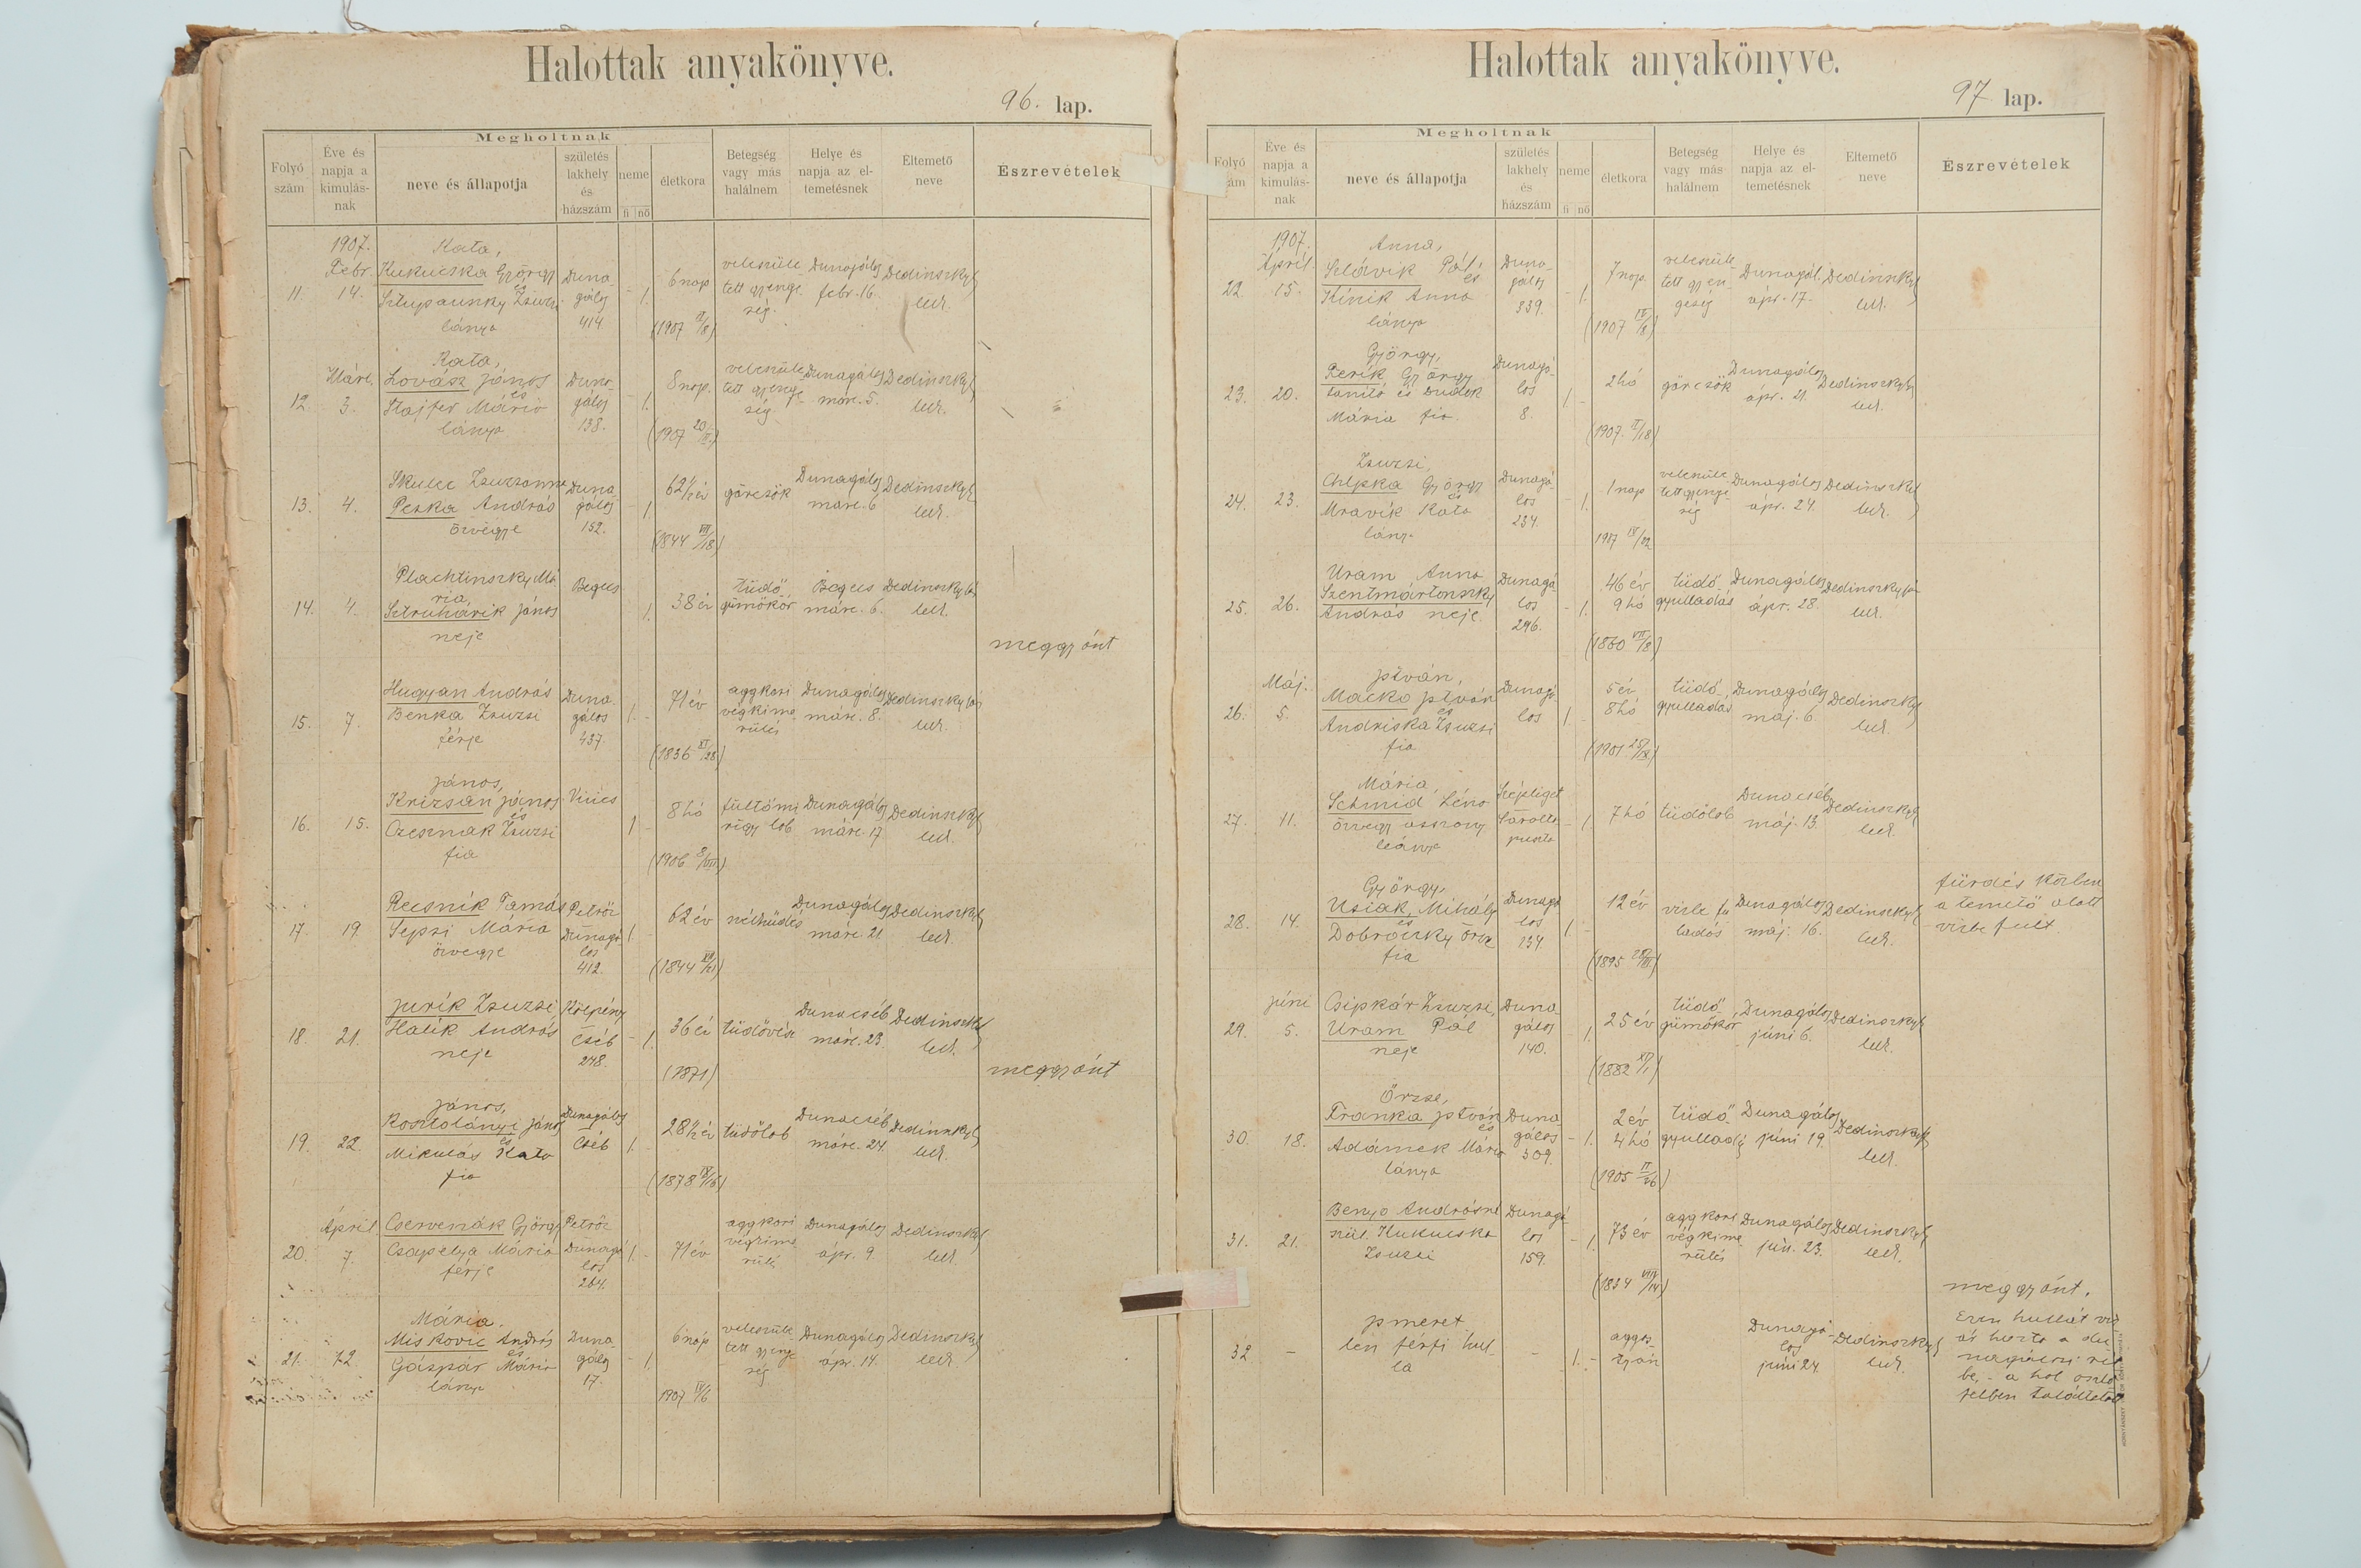 Halottak anyakönyve.
96. lap.
Megholtnak
Folyó szám
Éve és napja a kimulás-nak
neve és állapotja
születés lakhely és házszám
neme
fi nő
életkora
Betegség vagy más halálnem
Helye és napja az el-temetésnek
Eltemető neve
Észrevételek
1907.
Febr.
11. 14.
Kata,
Kukucska György
és
Sztupavszky Zsuzsi
lánya
Duna
gálos
414.
- 1.
6 nap
(1907 II/8)
veleszüle
tett gyenge
ség.
Dunagálos
febr. 16.
Dedinszky
lelk.
Márc.
12. 3.
Kata,
Lovász János
és
Stajfer Mária
lánya
Duna
gálos
138.
- 1.
8 nap.
(1907 20/II)
veleszüle
tett gyenge
ség
Dunagálos
márc. 5.
Dedinszky
lelk.
13. 4.
Skulec Zsuzsanna
Peska András
özvegye
Duna
gálos
152.
- 1.
62½ év
(1844 VII/18)
görcsök
Dunagálos
márc. 6
Dedinszky
lelk.
14. 4.
Plachtinszky Má
ria,
Sztruhárik János
neje
Begecs
1.
38 év
tüdő
gümőkór
Begecs
márc. 6.
Dedinszky
lelk.
meggyónt
15. 7.
Hugyan András
Benka Zsuzsi
férje
Duna
gálos
437.
1. -
71 év
(1836 XI/28)
aggkori
végkime
rülés
Dunagálos
márc. 8.
Dedinszky
lelk.
16. 15.
János,
Krizsan János
és
Czesznak Zsuzsi
fia
1 -
8 hó
lob
Dunagálos
márc. 17
Dedinszky
lelk.
17. 19.
Recsnik Tamás
Sepsi Mária
özvegye
Petrőc
Dunagá
los
412.
1. -
62 év
nélhüdés
Dunagálos
márc. 21.
Dedinszky
lelk.
18. 21.
Jurík Zsuzsi
Halík András
neje
Kölpény
Cséb
248.
- 1.
36 év
(1871)
tüdővész
Dunacséb
márc. 23.
Dedinszky
lelk.
meggyónt
19. 22.
János,
Kosztolányi János
és
Mikulás Kata
fia
Dunagálos
Cséb
1. -
28½ év
(1878 IX/16)
tüdőlob
Dunacséb
márc. 24.
Dedinszky
lelk.
April
20. 7.
Cservenák György
Csapelya Mária
férje
Petrőc
Dunagá
los
264.
1. -
71 év
aggkori
végkime
rülés
Dunagálos
ápr. 9.
Dedinszky
lelk.
21. 12.
Mária,
Miskovic András
és
Gáspár Mária
lánya
Duna
gálos
17.
- 1.
6 nap
1907 IV/6
veleszüle
tett gyenge
ség
Dunagálos
ápr. 14.
Dedinszky
lelk.
Halottak anyakönyve.
97 lap.
Megholtnak
Folyó szám
Éve és napja a kimulás-nak
neve és állapotja
születés lakhely és házszám
neme
fi nő
életkora
Betegség vagy más halálnem
Helye és napja az el-temetésnek
Eltemető neve
Észrevételek
1907.
Április
22. 15.
Anna,
Szlávik Pál,
és
Kínik Anna
lánya
Duna-
gálos
339.
- 1.
7 nap.
(1907 IV/8)
veleszüle
tett gyen
geség
Dunagál.
ápr. 17.
Dedinszky
lelk.
23. 20.
György,
Perík György
tanító és Dudok
Mária fia.
Dunagá-
los
8.
1. -
2 hó
(1907. II/18)
görcsök
Dunagálos
ápr. 21.
Dedinszky
lelk.
24. 23.
Zsuzsi,
Chlpka György
és
Mravík Kata
lány.
Dunagá
los
234.
- 1.
1 nap
1907 IV/22
veleszüle
tett gyenge
ség
Dunagálos
ápr. 24.
Dedinszky
lelk.
25. 26.
Uram Anna
Szentmártonszky
András neje.
Dunagá
los
296.
- 1.
46 év
9 hó
(1860 VII/8)
tüdő
gyulladás
Dunagálos
ápr. 28.
Dedinszky
lelk.
Máj.
26. 5.
István,
Macko István
és
Andriska Zsuzsi
fia
Dunagá
los
1 -
5 év
8 hó
tüdő
gyulladás
Dunagálos
máj. 6.
Dedinszky
lelk.
27. 11.
Mária,
Schmid Léna
özvegy asszony
leánya
Szépliget
Sarolta
puszta
- 1.
7 hó
tüdőlob
Dunacséb
máj. 13.
Dedinszky
lelk.
28. 14.
György,
Usiak, Mihály
és
Dobroczky Örzse
fia
Dunagá
los
134.
1. -
12 év
vizbe fu
ladás
Dunagálos
máj. 16.
Dedinszky
lelk.
fürdés közben
a temető alatt
vizbe fult.
júni
29. 5.
Csipkár Zsuzsi,
Uram Pál
neje
Duna
gálos
140.
- 1.
25 év
(1882 XI/1)
tüdő
gümőkór
Dunagálos
júni 6.
Dedinszky
lelk.
30. 18.
Örzse,
Franka István
és
Adámek Mária
lánya
Duna
gálos
309.
- 1.
2 év
4 hó
(1905 II/26)
tüdő
gyulladás
Dunagálos
júni 19.
Dedinszky
lelk.
31. 21.
Benyo Andrásné
szül. Kukucska
Zsuzsi
Dunagá
los
159.
- 1.
73 év
(1834 VIII/14)
aggkori
végkime
rülés
Dunagálos
jún. 23.
Dedinszky
lelk.
meggyónt.
32. -
Ismeret
len férfi hul
la
-
1. -
aggas
tyán
Dunagá
los
júni 24.
Dedinszky
lelk.
Ezen hullát
hozta a du
nagálosi rét
be, - a hol
találtatott